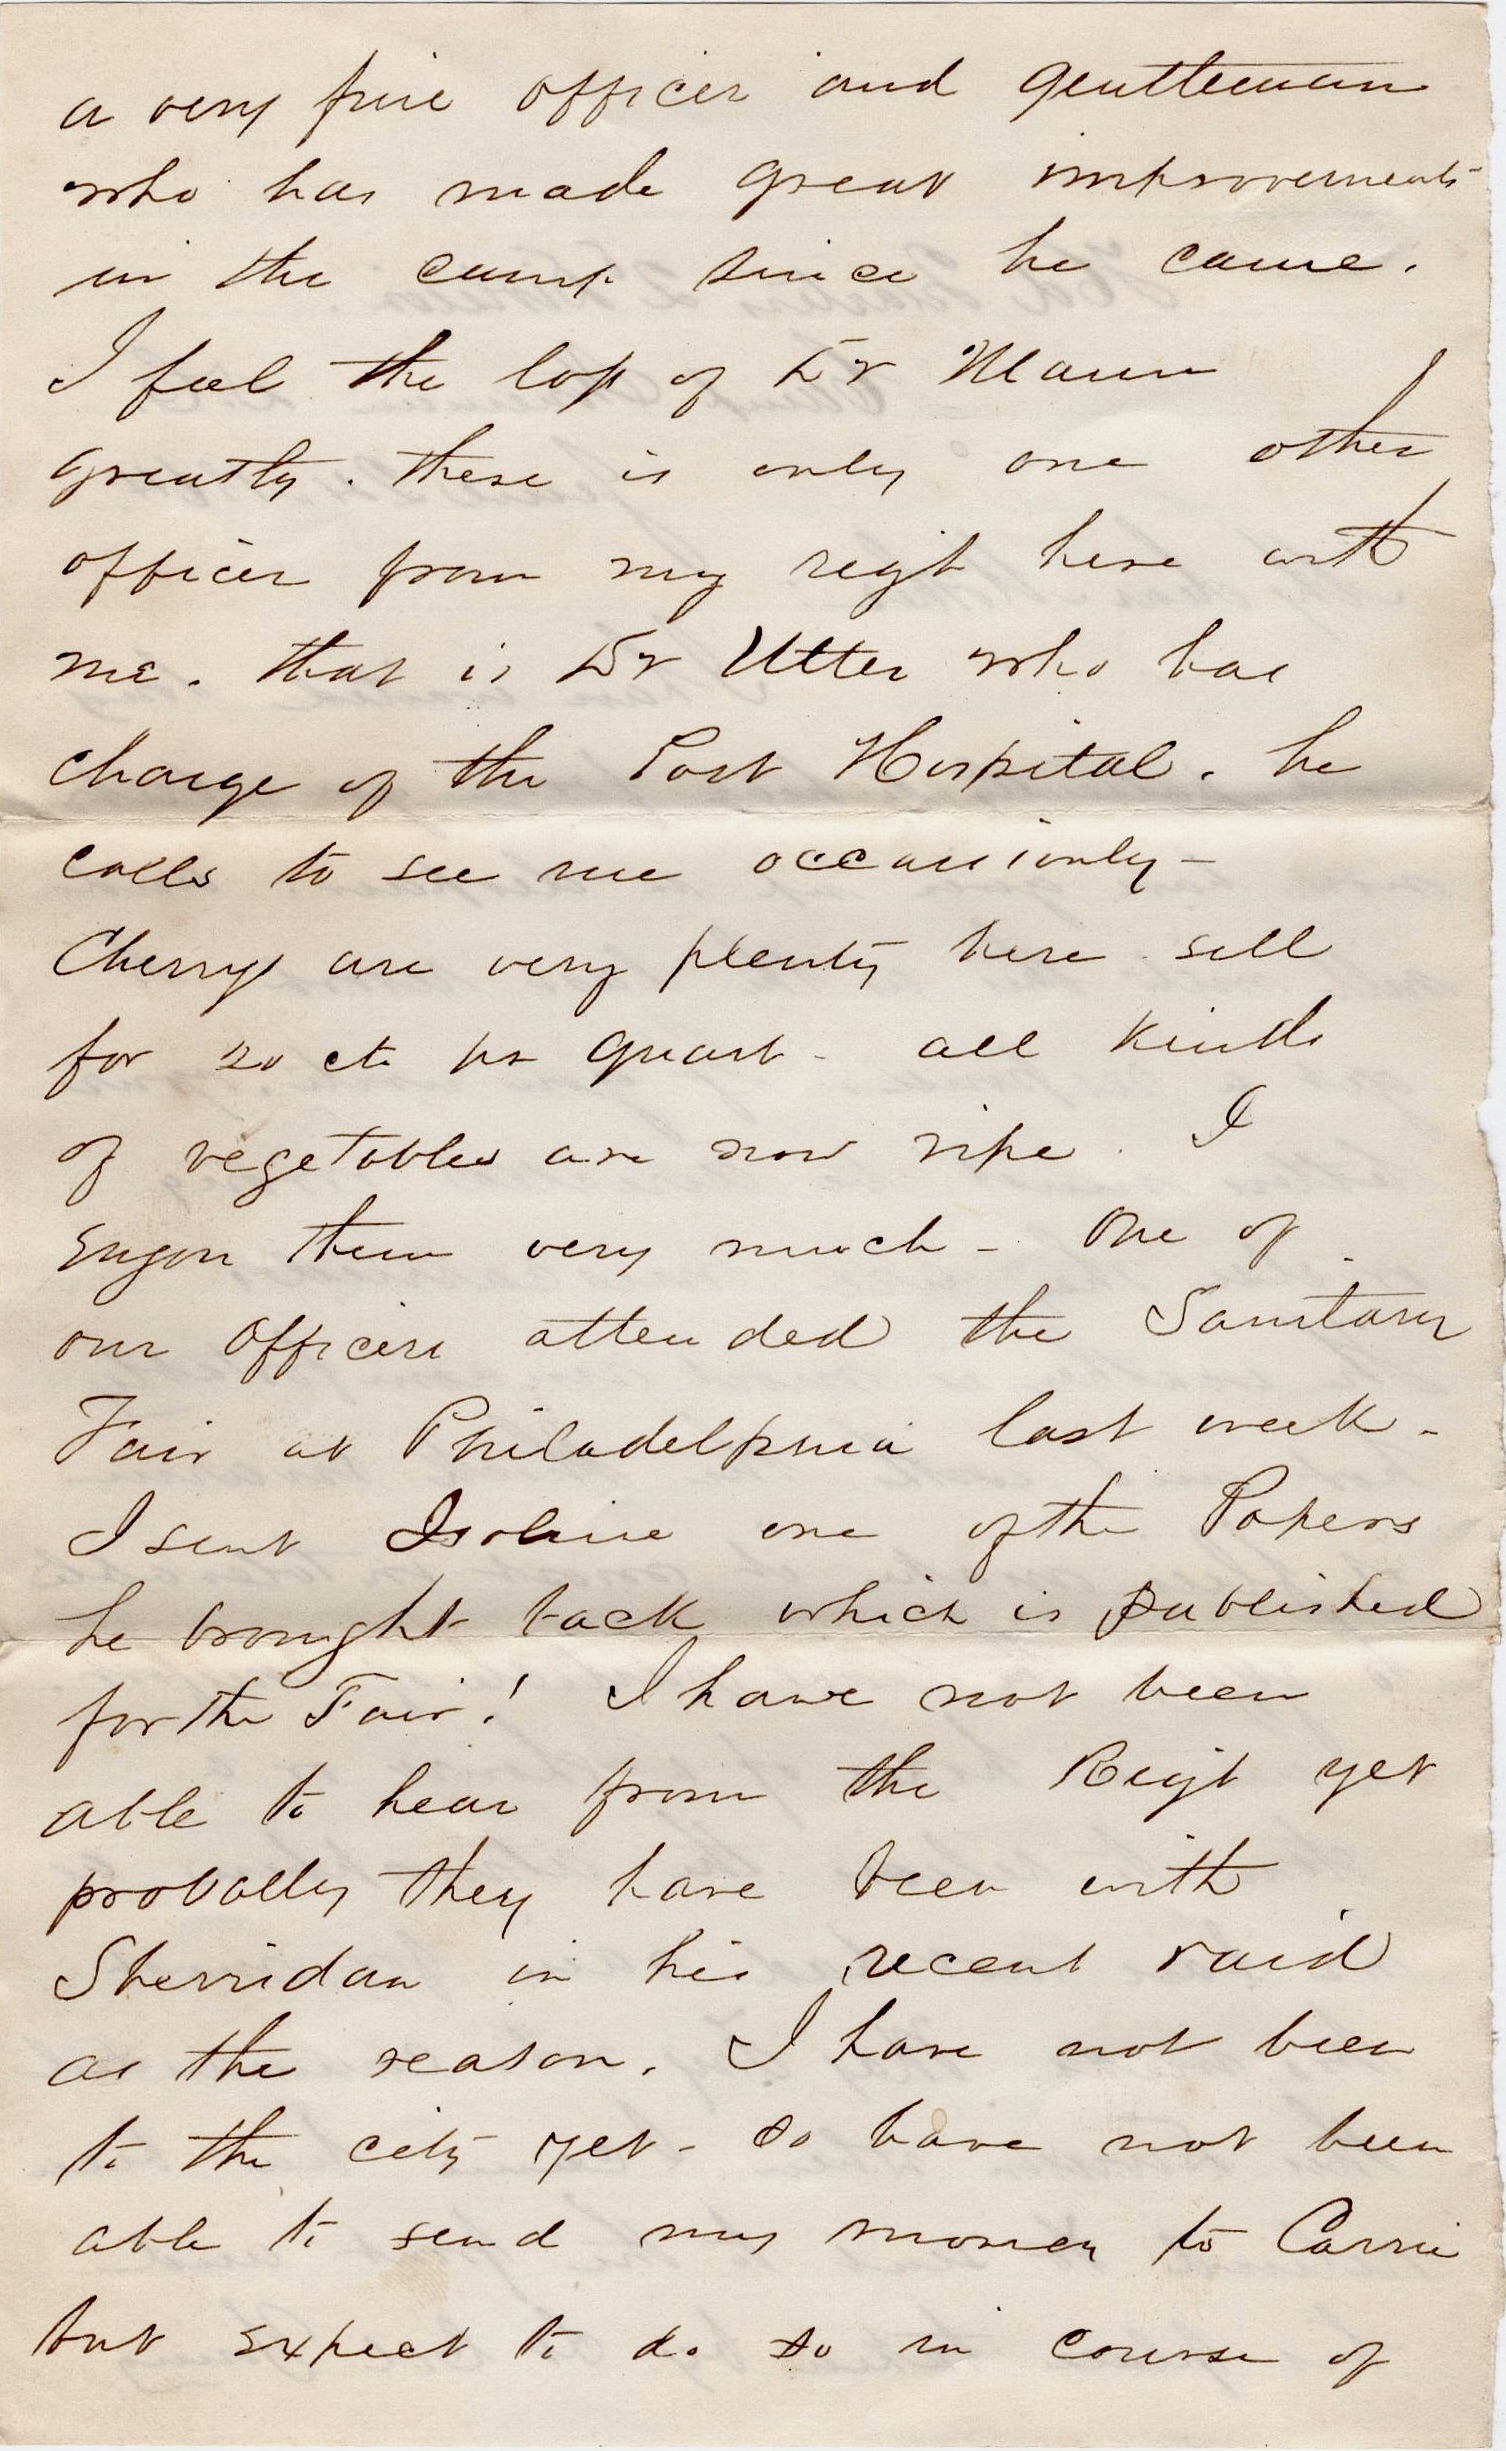 a very fine officer and gentleman
who has made great improvements
in the camp since he came.
I feel the loss of Dr Mann
greatly. there is only one other
officer from my regt here with
me. that is Dr Utter who has
charge of the Post Hospital. he
calls to see me occasionly -
Cherrys are very plenty here sell
for 20 cts pr quart - all kinds
of vegetables are now ripe. I
enjoy them very much - One of
our Officers attended the Sanitary
Fair at Philadelphia last week -
I sent Isoline one of the Papers
he brought back which is published
for the Fair! I have not been
able to hear from the Regt yet
probally they have been with
Sherridan in his recent raid
as the reason. I have not been
to the city yet - so have not been
able to send my money to Carrie
but expect to do so in course of